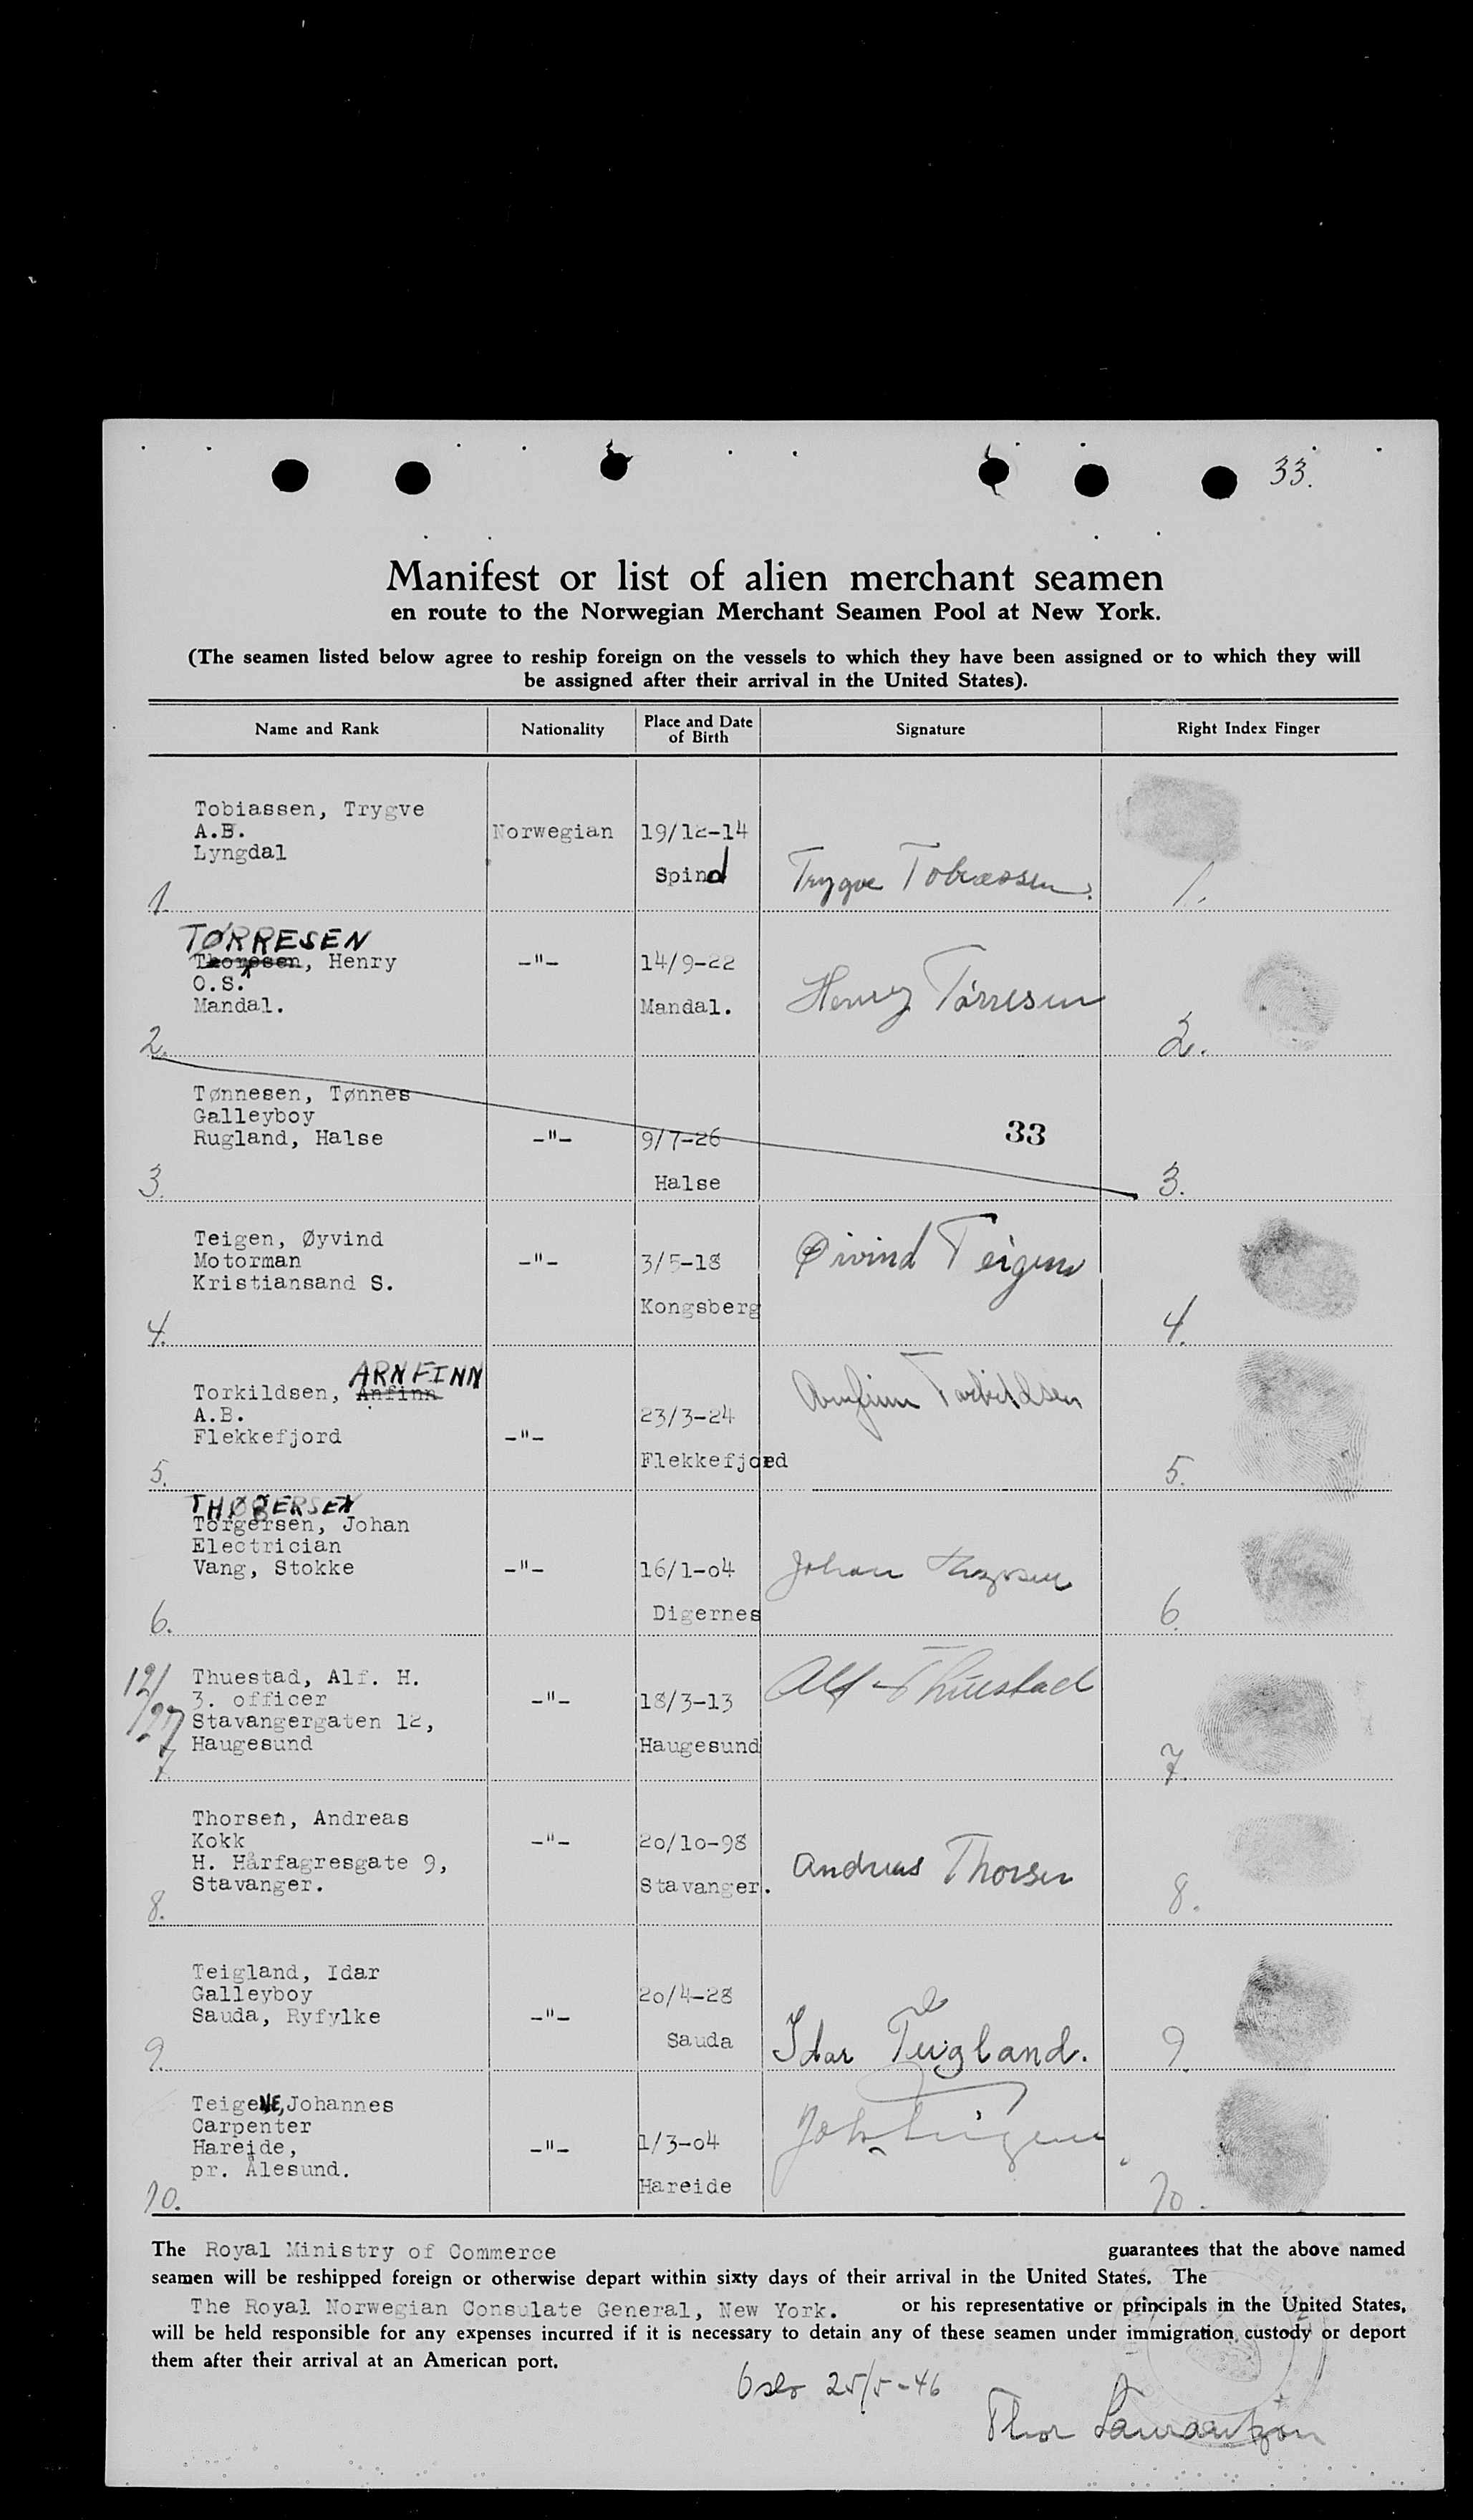 33.
Manifest or list of alien merchant seamen
en route to the Norwegian Merchant Seamen Pool at New York.
(The seamen listed below agree to reship foreign on the vessels to which they have been assigned or to which they will
be assigned after their arrival in the United States).
Name and Rank Nationality Place and Date of Birth Signature Right Index Finger
Tobiassen, Trygve
A.B. Norwegian 19/12-14
Lyngdal
Spind Trygve Tobiassen.
1. 1.
TØRRESEN
Thoresen, Henry -"- 14/9-22
O.S.
Mandal. Mandal. Henry Tørresen
2. 2.
Tønnesen, Tønnes
Galleyboy
Rugland, Halse -"- 9/7-26 33
Halse
3. 3.
Teigen, Øyvind
Motorman -"- 3/5-18 Øivind Teigen
Kristiansand S.
Kongsberg
4. 4.
ARNFINN
Torkildsen, Anfinn Arnfinn Torkildsen
A.B. 23/3-24
Flekkefjord -"-
Flekkefjord
5. 5.
THØGERSEN
Torgersen, Johan
Electrician
Vang, Stokke -"- 16/1-04 Johan
Digernes
6. 6.
Thuestad, Alf. H. Alf Thuestad
3. officer -"- 18/3-13
Stavangergaten 12,
Haugesund Haugesund
7. 7.
Thorsen, Andreas
Kokk -"- 20/10-98
H. Hårfagresgate 9,
Stavanger. Stavanger. Andreas Thorsen
8. 8.
Teigland, Idar
Galleyboy 20/4-28
Sauda, Ryfylke -"-
Sauda Idar Teigland.
9. 9.
TeigeNE, Johannes
Carpenter
Hareide, -"- 1/3-04
pr. Ålesund.
Hareide
10. 10.
The Royal Ministry of Commerce guarantees that the above named
seamen will be reshipped foreign or otherwise depart within sixty days of their arrival in the United States. The
The Royal Norwegian Consulate General, New York. or his representative or principals in the United States,
will be held responsible for any expenses incurred if it is necessary to detain any of these seamen under immigration custody or deport
them after their arrival at an American port.
Oslo 25/5-46
Thor